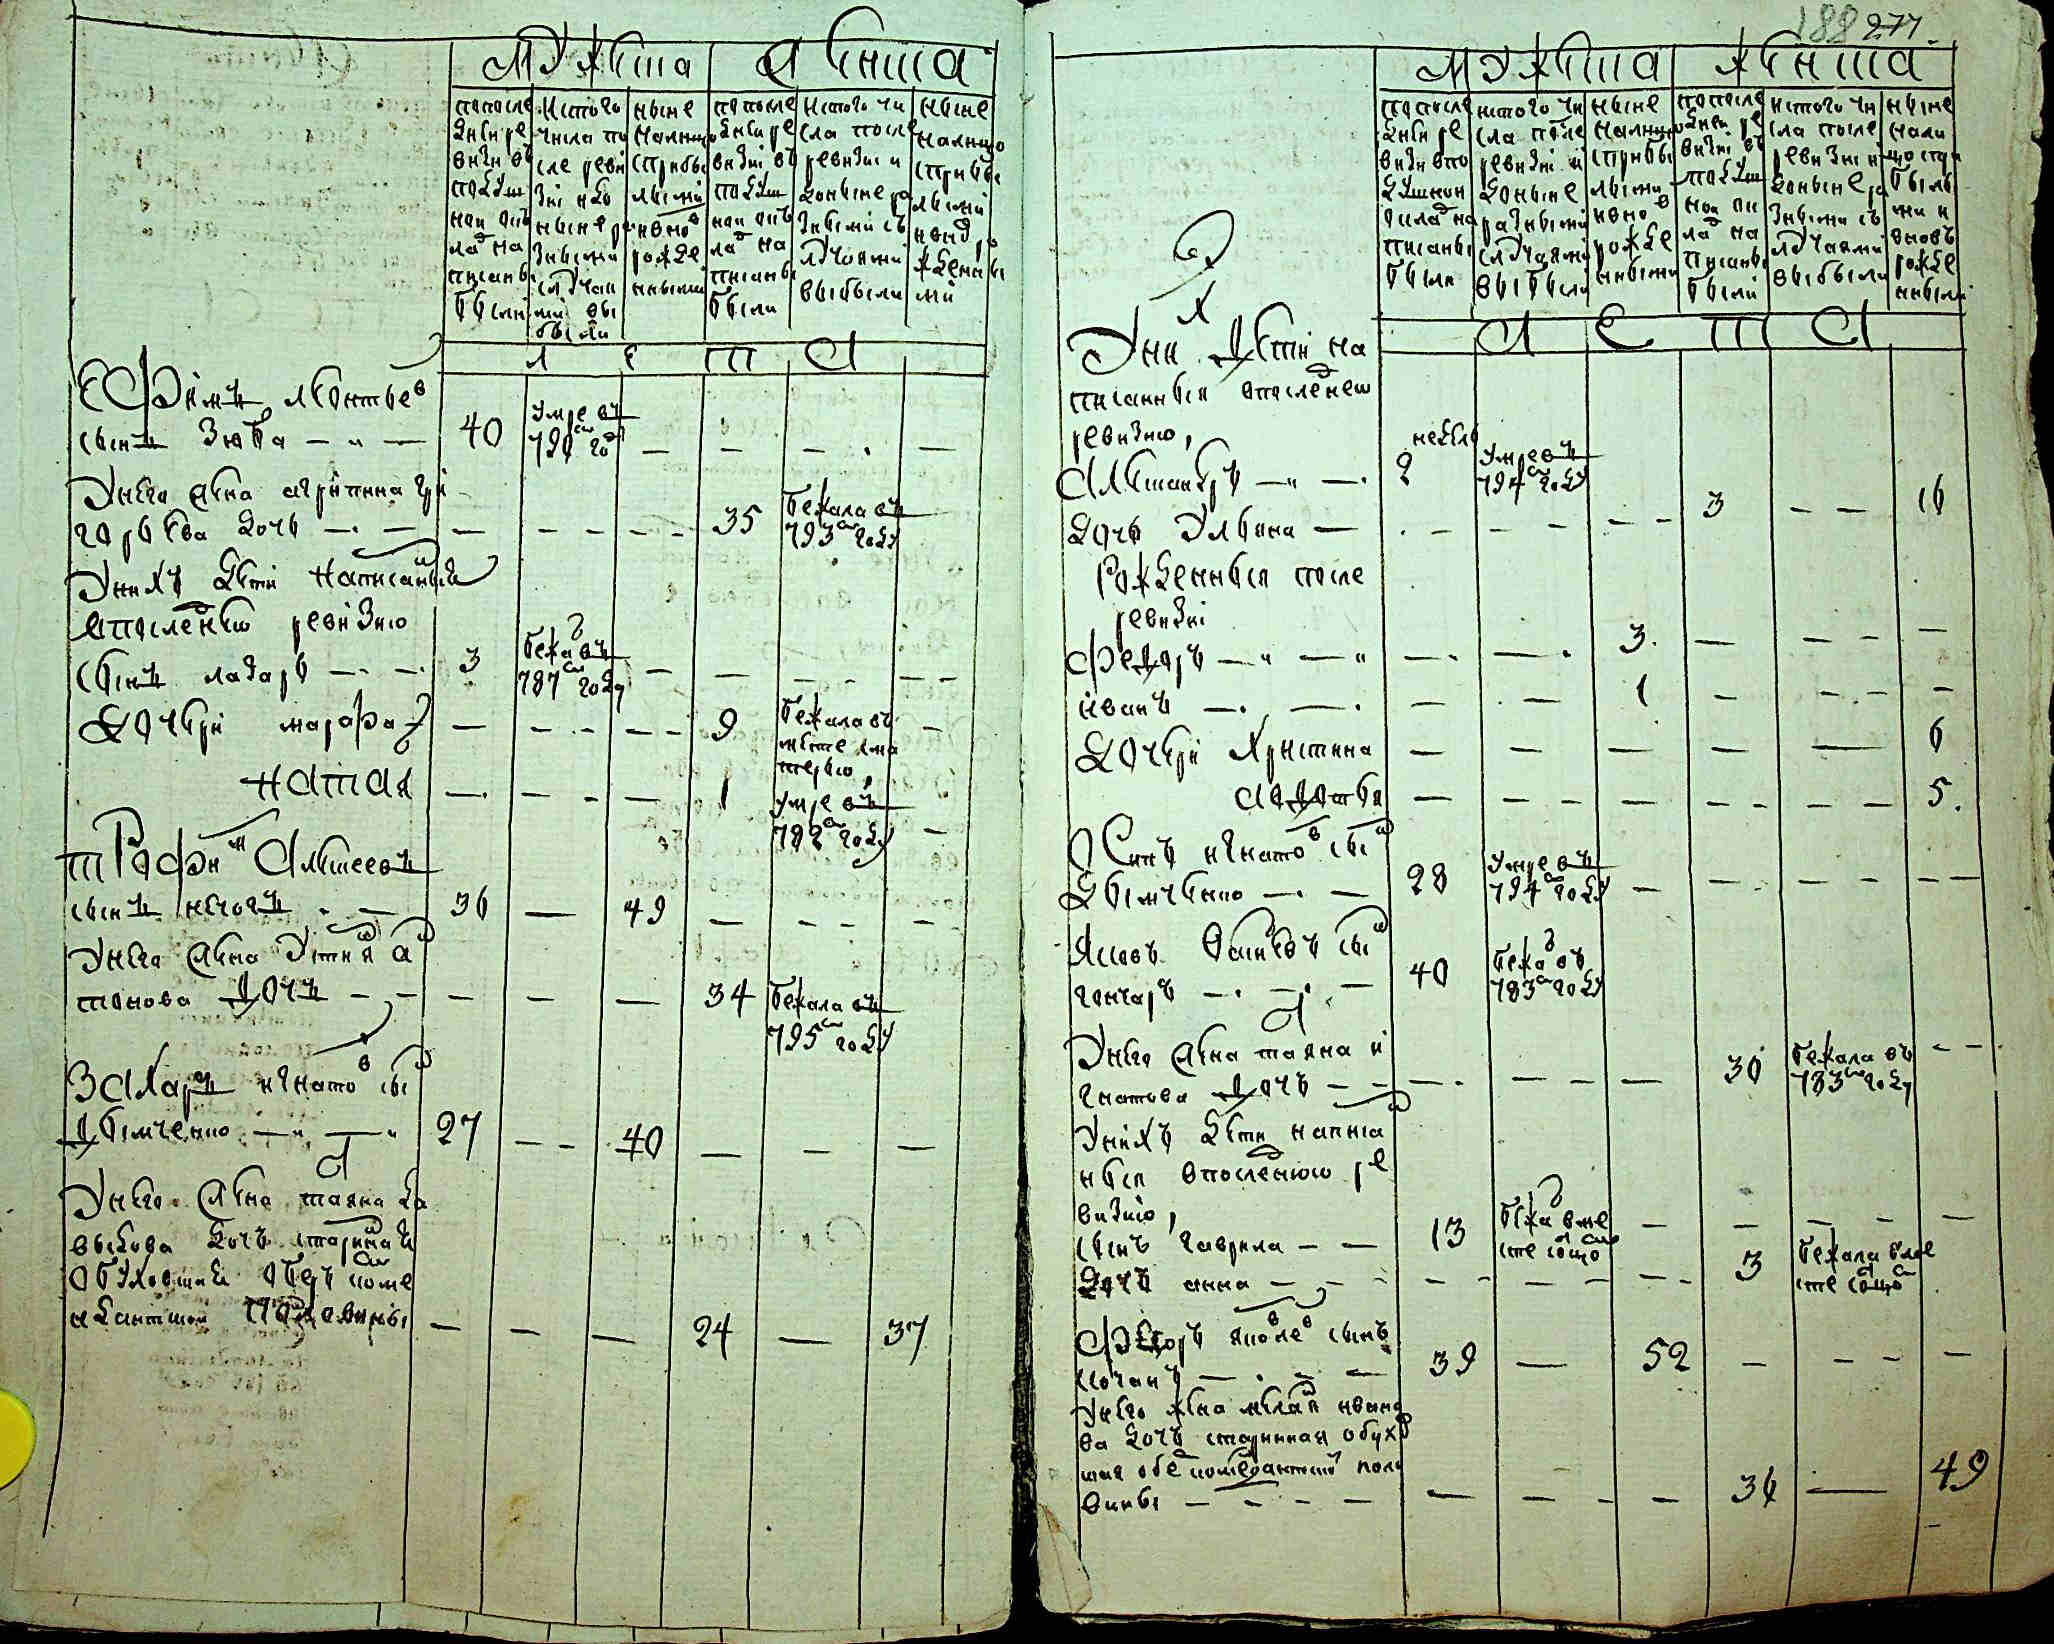 мужеска
женска
попосле
дней ре
визи въ
подуш
ной окъ
лад на
писаны
были
истого
числа по
сле реви
зи идо
ныне ра
зными
случаи
ми вы
были
ныне
налицо
сприбы
лыми
ивно в
рожде
нными
попосле
дней ре
визи въ
подуш
ной окъ
лад на
писаны
были
истого чи
сла после
ревизи и
доныне ра
зными съ
лучаями
выбыли
ныне
налицо
сприбы
лыми
ивнов ро
жденны
ми
лета
Ефимъ леонтьев
сынъ Зюба
40
умре въ
790 год
унего жена агрипина гри
горьева дочь
35
бежала въ
793 году
унихъ дети написаныи
впоследнею ревизию
сынъ лазарь
3
бежа въ
787 году
дочери марфа
9
бежала въ
месте сма
терью,
наталя
1
умре въ
782 году
Трофим Алексеевъ
сынъ
36
49
унего жена устиня а
нтонова дочъ
34
бежала въ
795 году
Захаръ игнатов сы
дьмченко
27
40
унего жена таяна да
выдова дочъ старинная
обуховшиной
половины
24
37
188 277
мужеска
женска
попосле
дней ре
визи впо
душной
оклад на
писаны
были
истого чи
сла после
ревизи и
доныне
разными
случаями
выбыли
ныне
налицо
сприбы
лыми
ивно в
рожде
нными
попосле
дней ре
визи въ
подуш
ной ок
лад на
писаны
были
истого чи
сла после
ревизи и
доныне ра
зными съ
лучаями
выбыли
ныне
нали
цо спри
былы
ми и
вновъ
рожде
нными
лета
уних дети на
писанныя впоследнею
ревизию,
Александръ
2
недели
умре въ
794 году
дочь Уляна
3
16
Рожденныя после
ревизи
Федоръ
3
иванъ
1
дочери Христина
6
авдотья
5
Осипъ игнатов сы
дымченко
28
умре въ
794 году
Яковъ
сы
гончаръ
40
бежа въ
783 году
унего жена таяна и
гнатова дочъ
30
бежала въ
783 году
унихъ дети написа
ныя впоследнюю ре
визию,
сынъ гаврила
13
бежа вме
сте сотцо
дочъ анна
3
бежала вме
сте сотцо
Федоръ яковлев сынъ
39
52
унего жена мелания ивано
ва дочъ старинная обухо
поло
вины
36
49